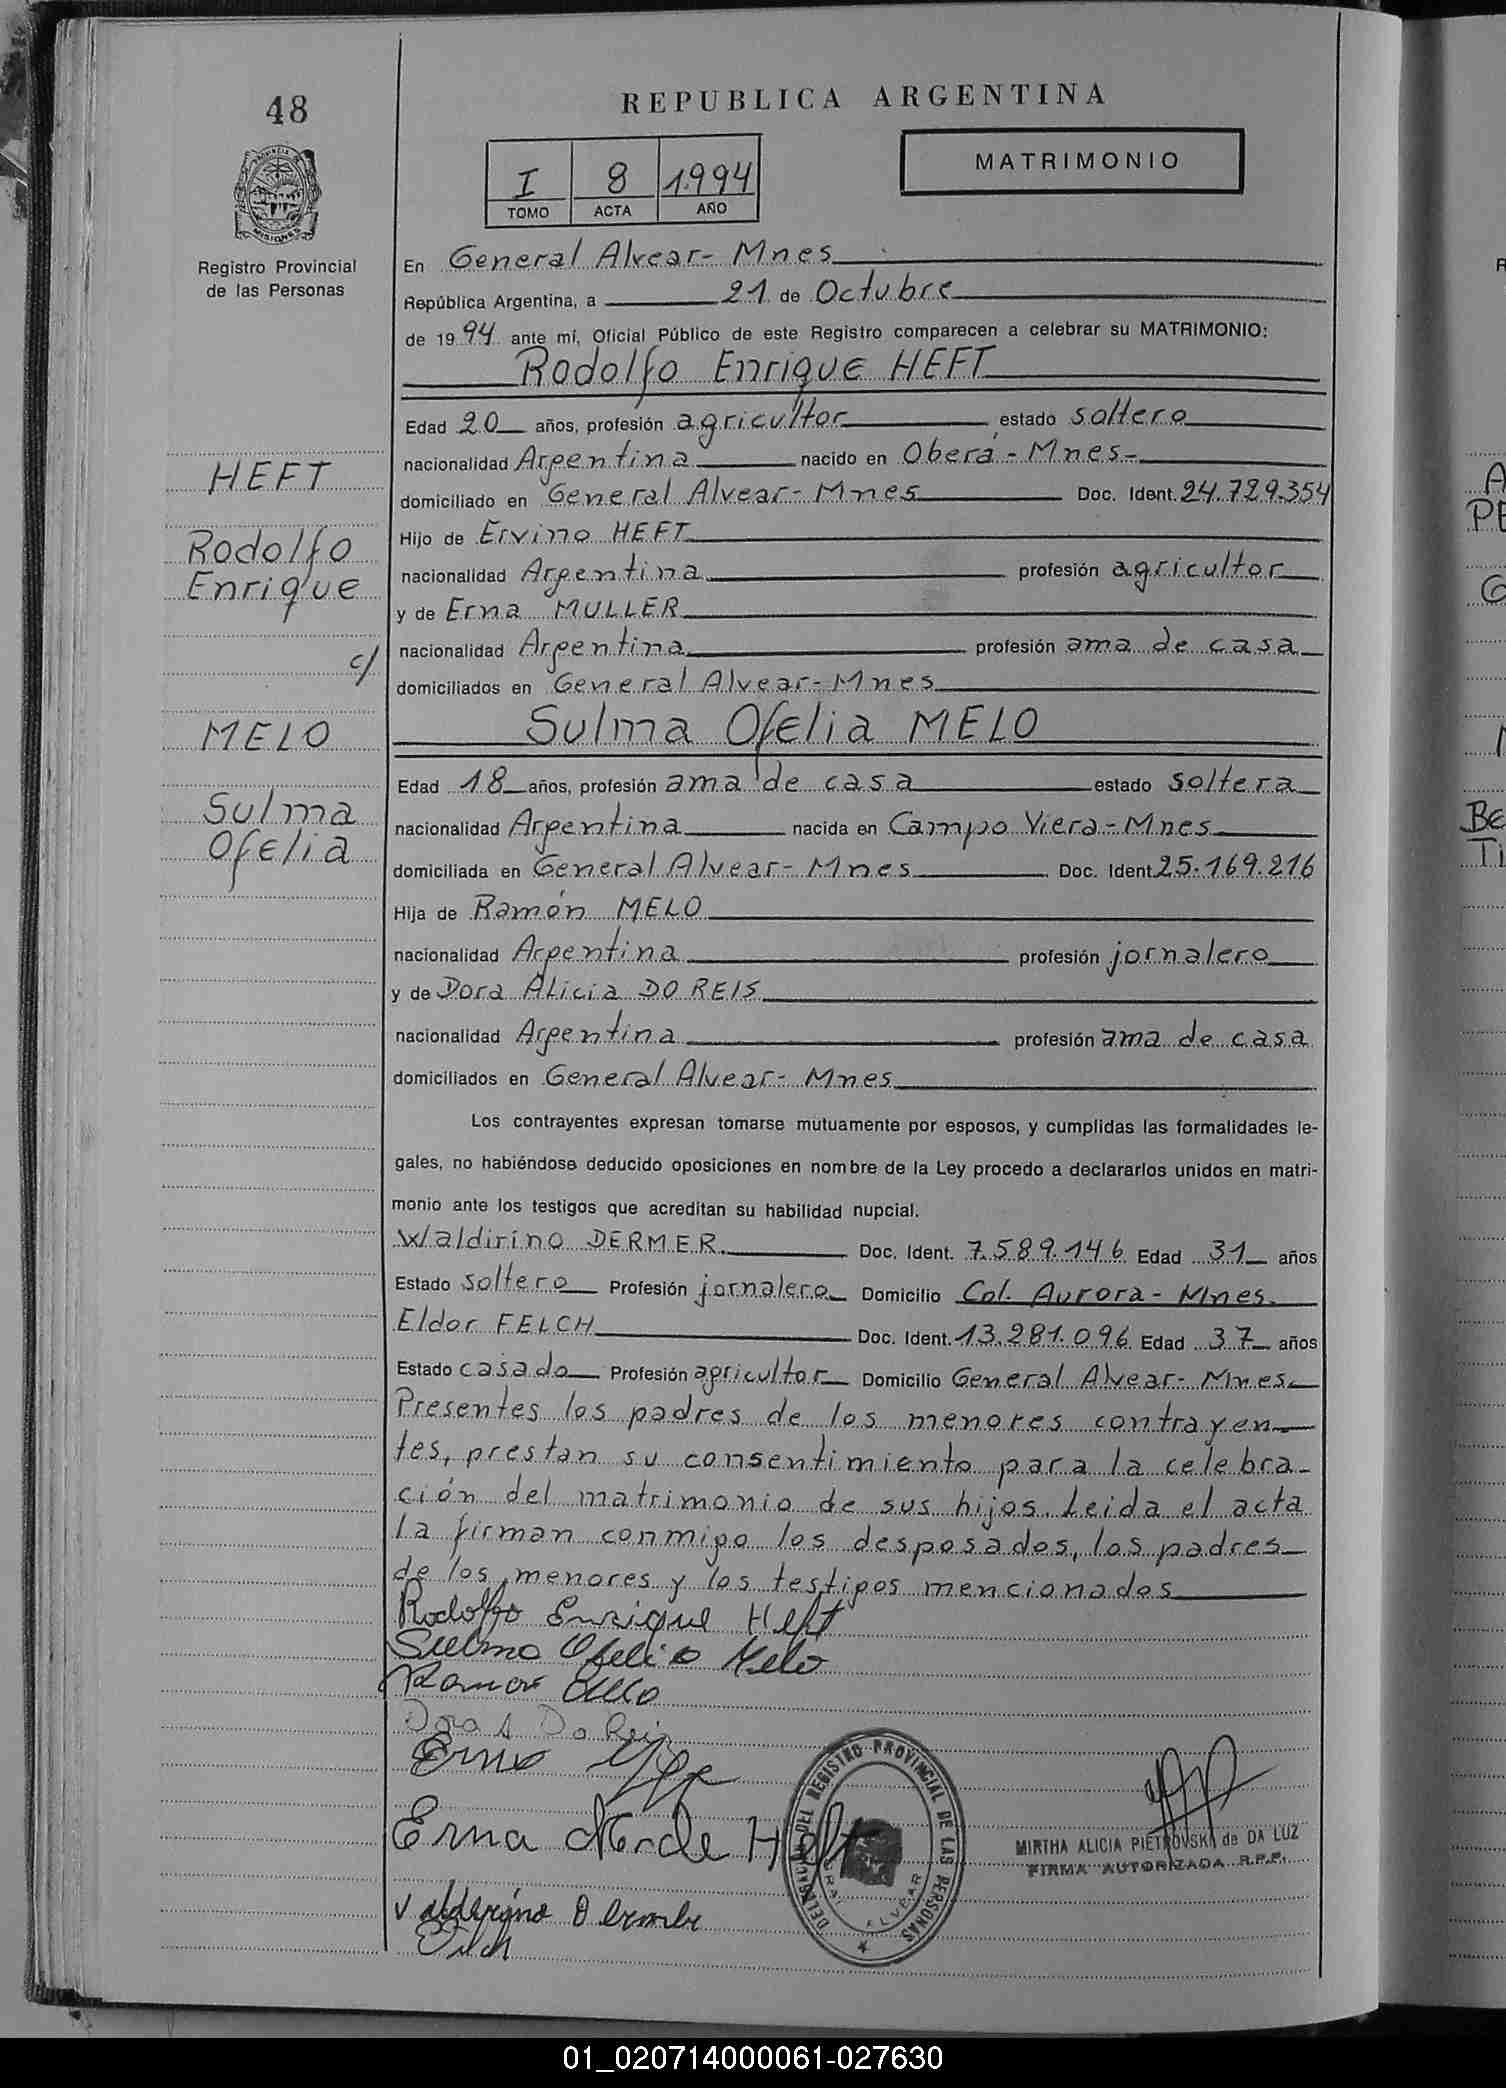 48
REPUBLICA ARGENTINA
I 8 1.994
TOMO ACTA AÑO
MATRIMONIO
PROVINCIA DE
MISIONES
Registro Provincial
de las Personas
En General Alvear- Mnes
República Argentina, a 21 de Octubre
de 19 94 ante mí, Oficial Público de este Registro comparecen a celebrar su MATRIMONIO:
Rodolfo Enrique HEFT
Edad 20 años, profesión agricultor estado soltero
nacionalidad Argentina nacido en Oberá - Mnes-
domiciliado en General Alvear- Mnes Doc. Ident. 24.729.354
Hijo de Ervino HEFT
nacionalidad Argentina profesión agricultor
y de Erna MULLER
nacionalidad Argentina profesión ama de casa
domiciliados en General Alvear- Mnes
HEFT
Rodolfo
Enrique
c/
MELO
Sulma
Ofelia
Sulma Ofelia MELO
Edad 18 años, profesión ama de casa estado soltera
nacionalidad Argentina nacida en Campo Viera - Mnes
domiciliada en General Alvear- Mnes Doc. Ident. 25.169.216
Hija de Ramón MELO
nacionalidad Argentina profesión jornalero
y de Dora Alicia DO REIS
nacionalidad Argentina profesión ama de casa
domiciliados en General Alvear- Mnes
Los contrayentes expresan tomarse mutuamente por esposos, y cumplidas las formalidades le-
gales, no habiéndose deducido oposiciones en nombre de la Ley procedo a declararlos unidos en matri-
monio ante los testigos que acreditan su habilidad nupcial.
Waldirino DERMER. Doc. Ident. 7.589.146 Edad 31 años
Estado soltero Profesión jornalero Domicilio Col. Aurora - Mnes.
Eldor FELCH Doc. Ident. 13.281.096 Edad 37 años
Estado casado Profesión agricultor Domicilio General Alvear- Mnes.
Presentes los padres de los menores contrayen
tes, prestan su consentimiento para la celebra-
ción del matrimonio de sus hijos. Leida el acta
la firman conmigo los desposados, los padres
de los menores y los testigos mencionados
Rodolfo Enrique Heft
Sulma Ofelia Melo
Ramon Melo
Dora A Do Reis
Erna M de Heft
DELEGACION DEL REGISTRO PROVINCIAL DE LAS PERSONAS
GRAL ALVEAR
MIRTHA ALICIA PIETROVSKI de DA LUZ
FIRMA AUTORIZADA R.P.P.
01_020714000061-027630